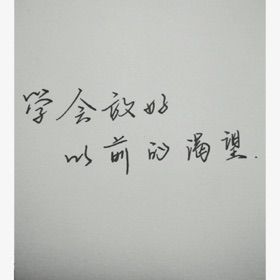 学会放好
以前的渴望.